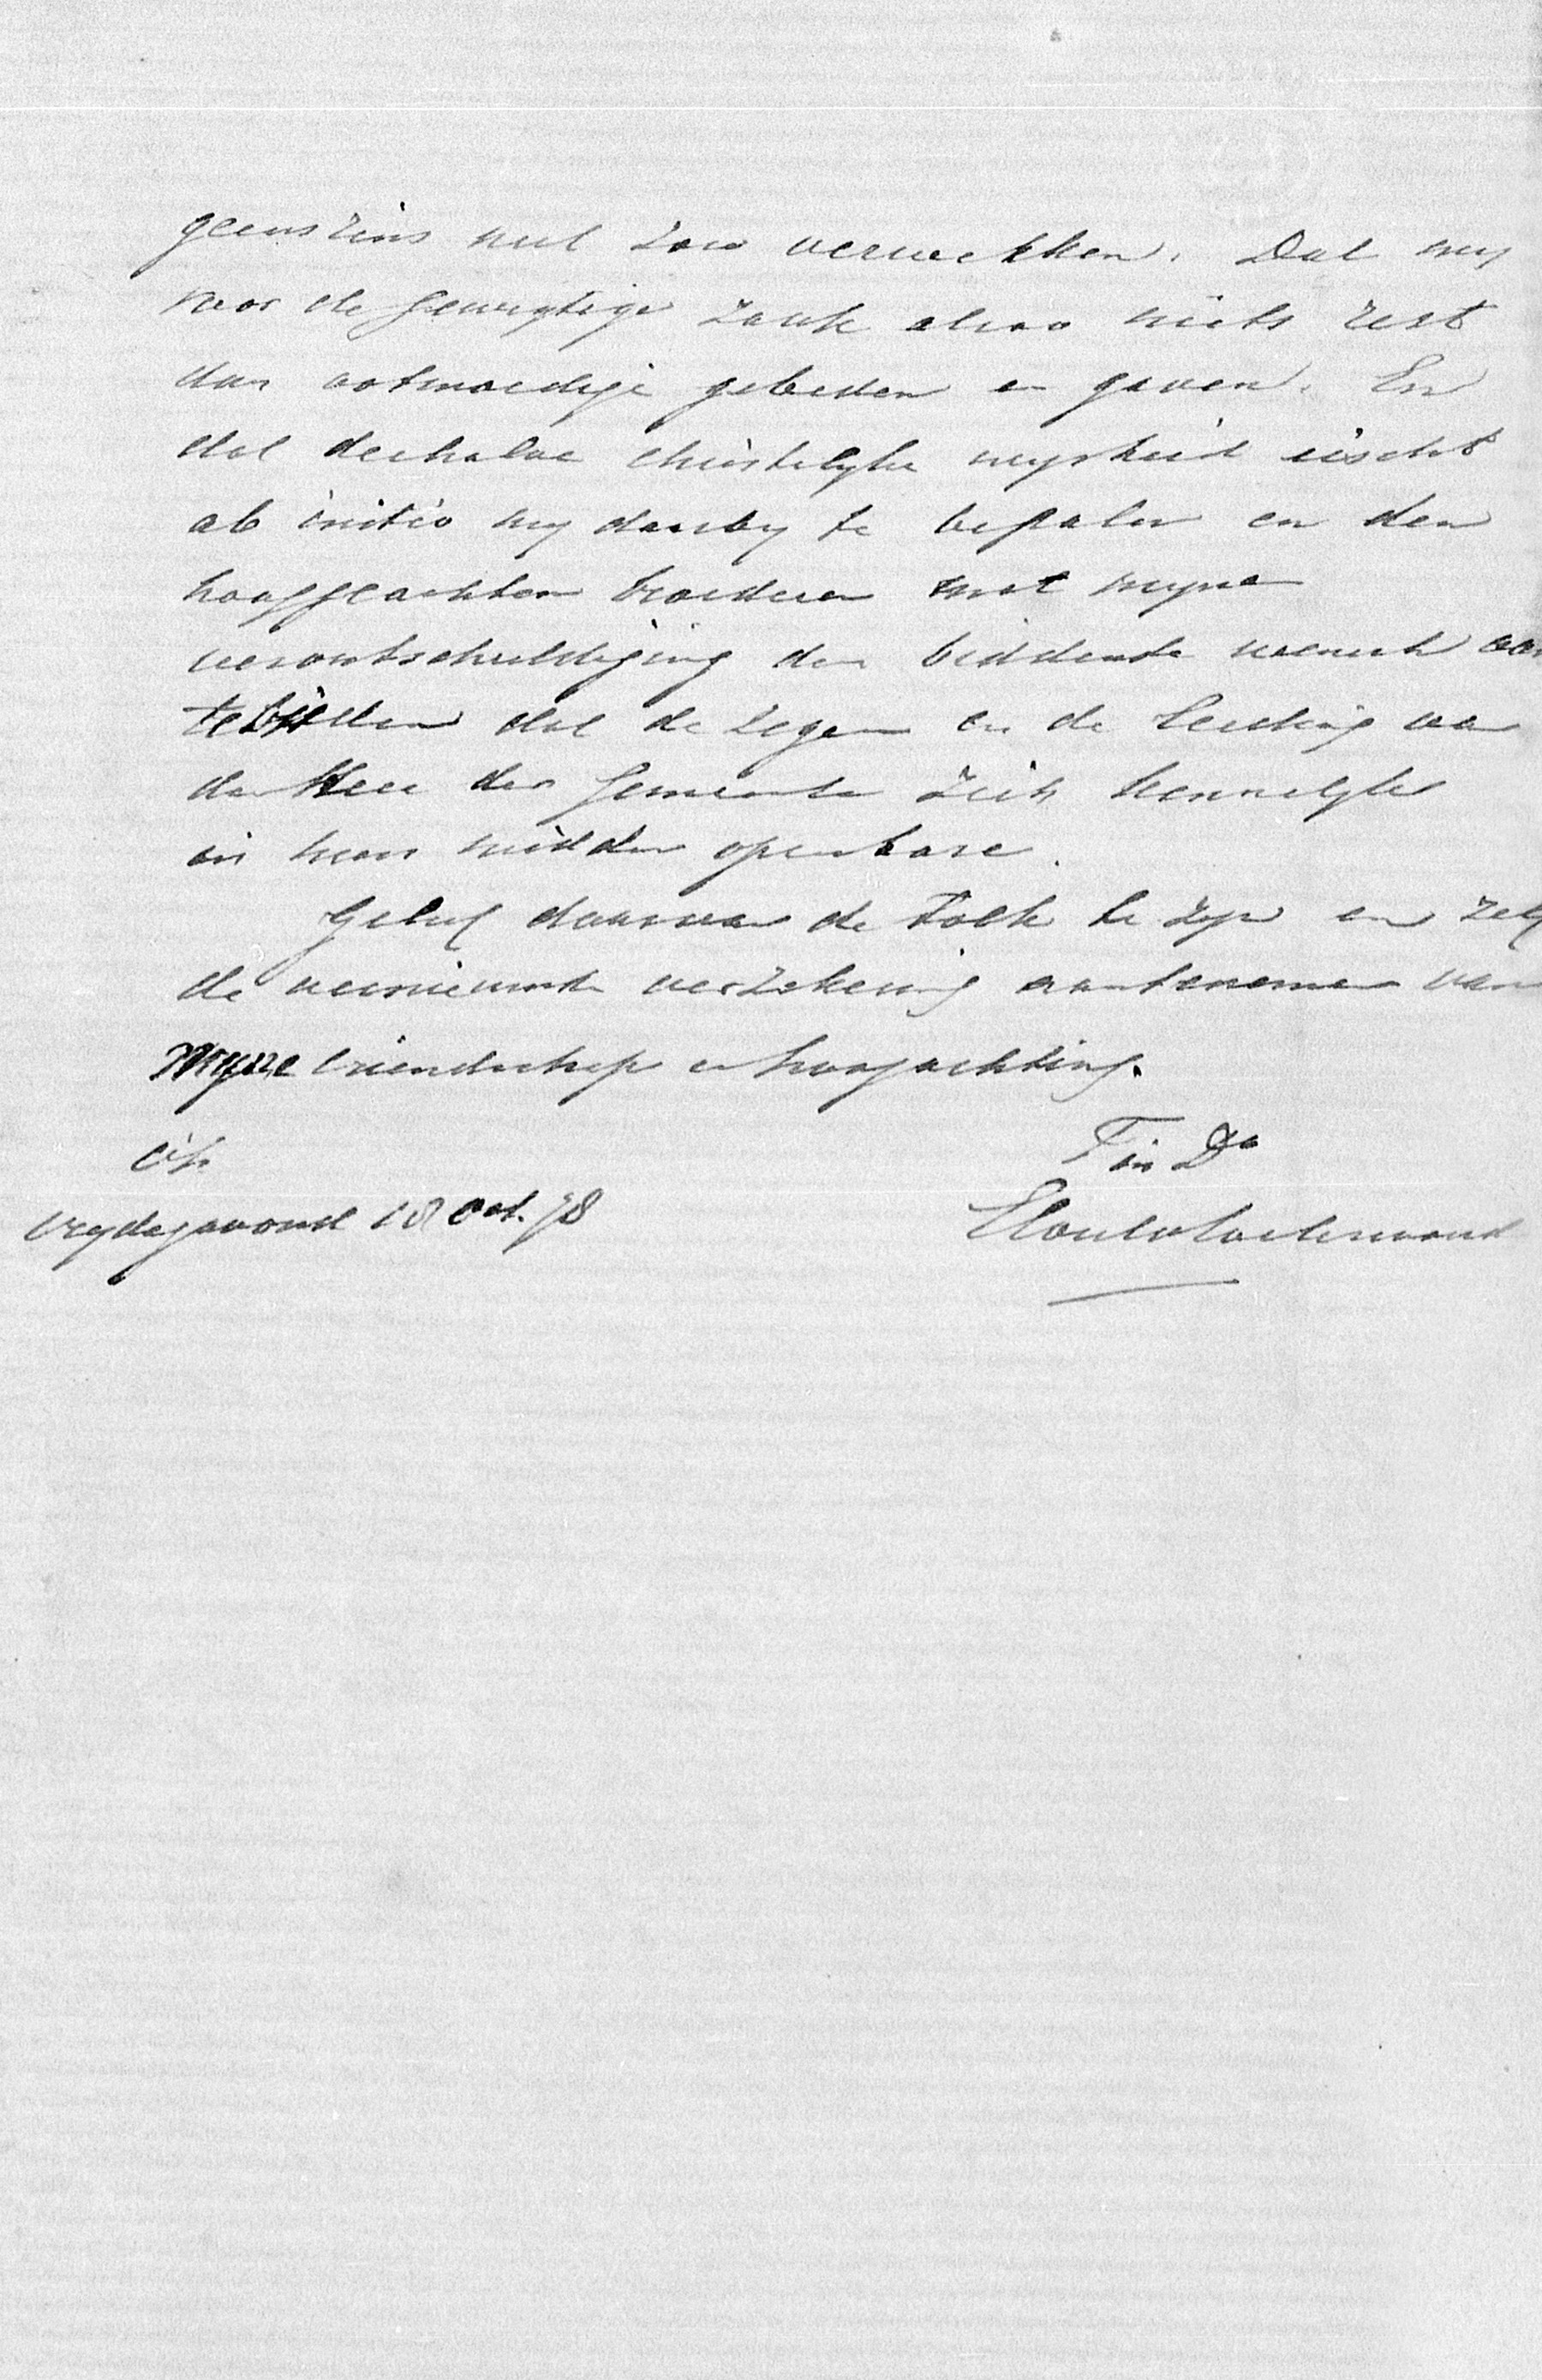 geenszins nut zou verwekken. Dat my
voor de gewigtige zaak alzoo niets rest
dan ootmoedige gebeden en gaven. En
dat derhalve christelyke wysheid eischt
ab initio my daarby te bepalen en den
hooggeachten broederen met myne
verontschuldiging den biddende wensch aan
te bieden dat de zegen en de leiding van
den Heer der Gemeente zich kennelyk
in hun midden openbare.
Gelief daarvan de tolk te zyn en zelf
de vernieuwde verzekering aantenemen van
Myne vriendschap en hoogachting.
T in Do
vrydagavond 18 Oct. 78
Elout v Soeterwoude